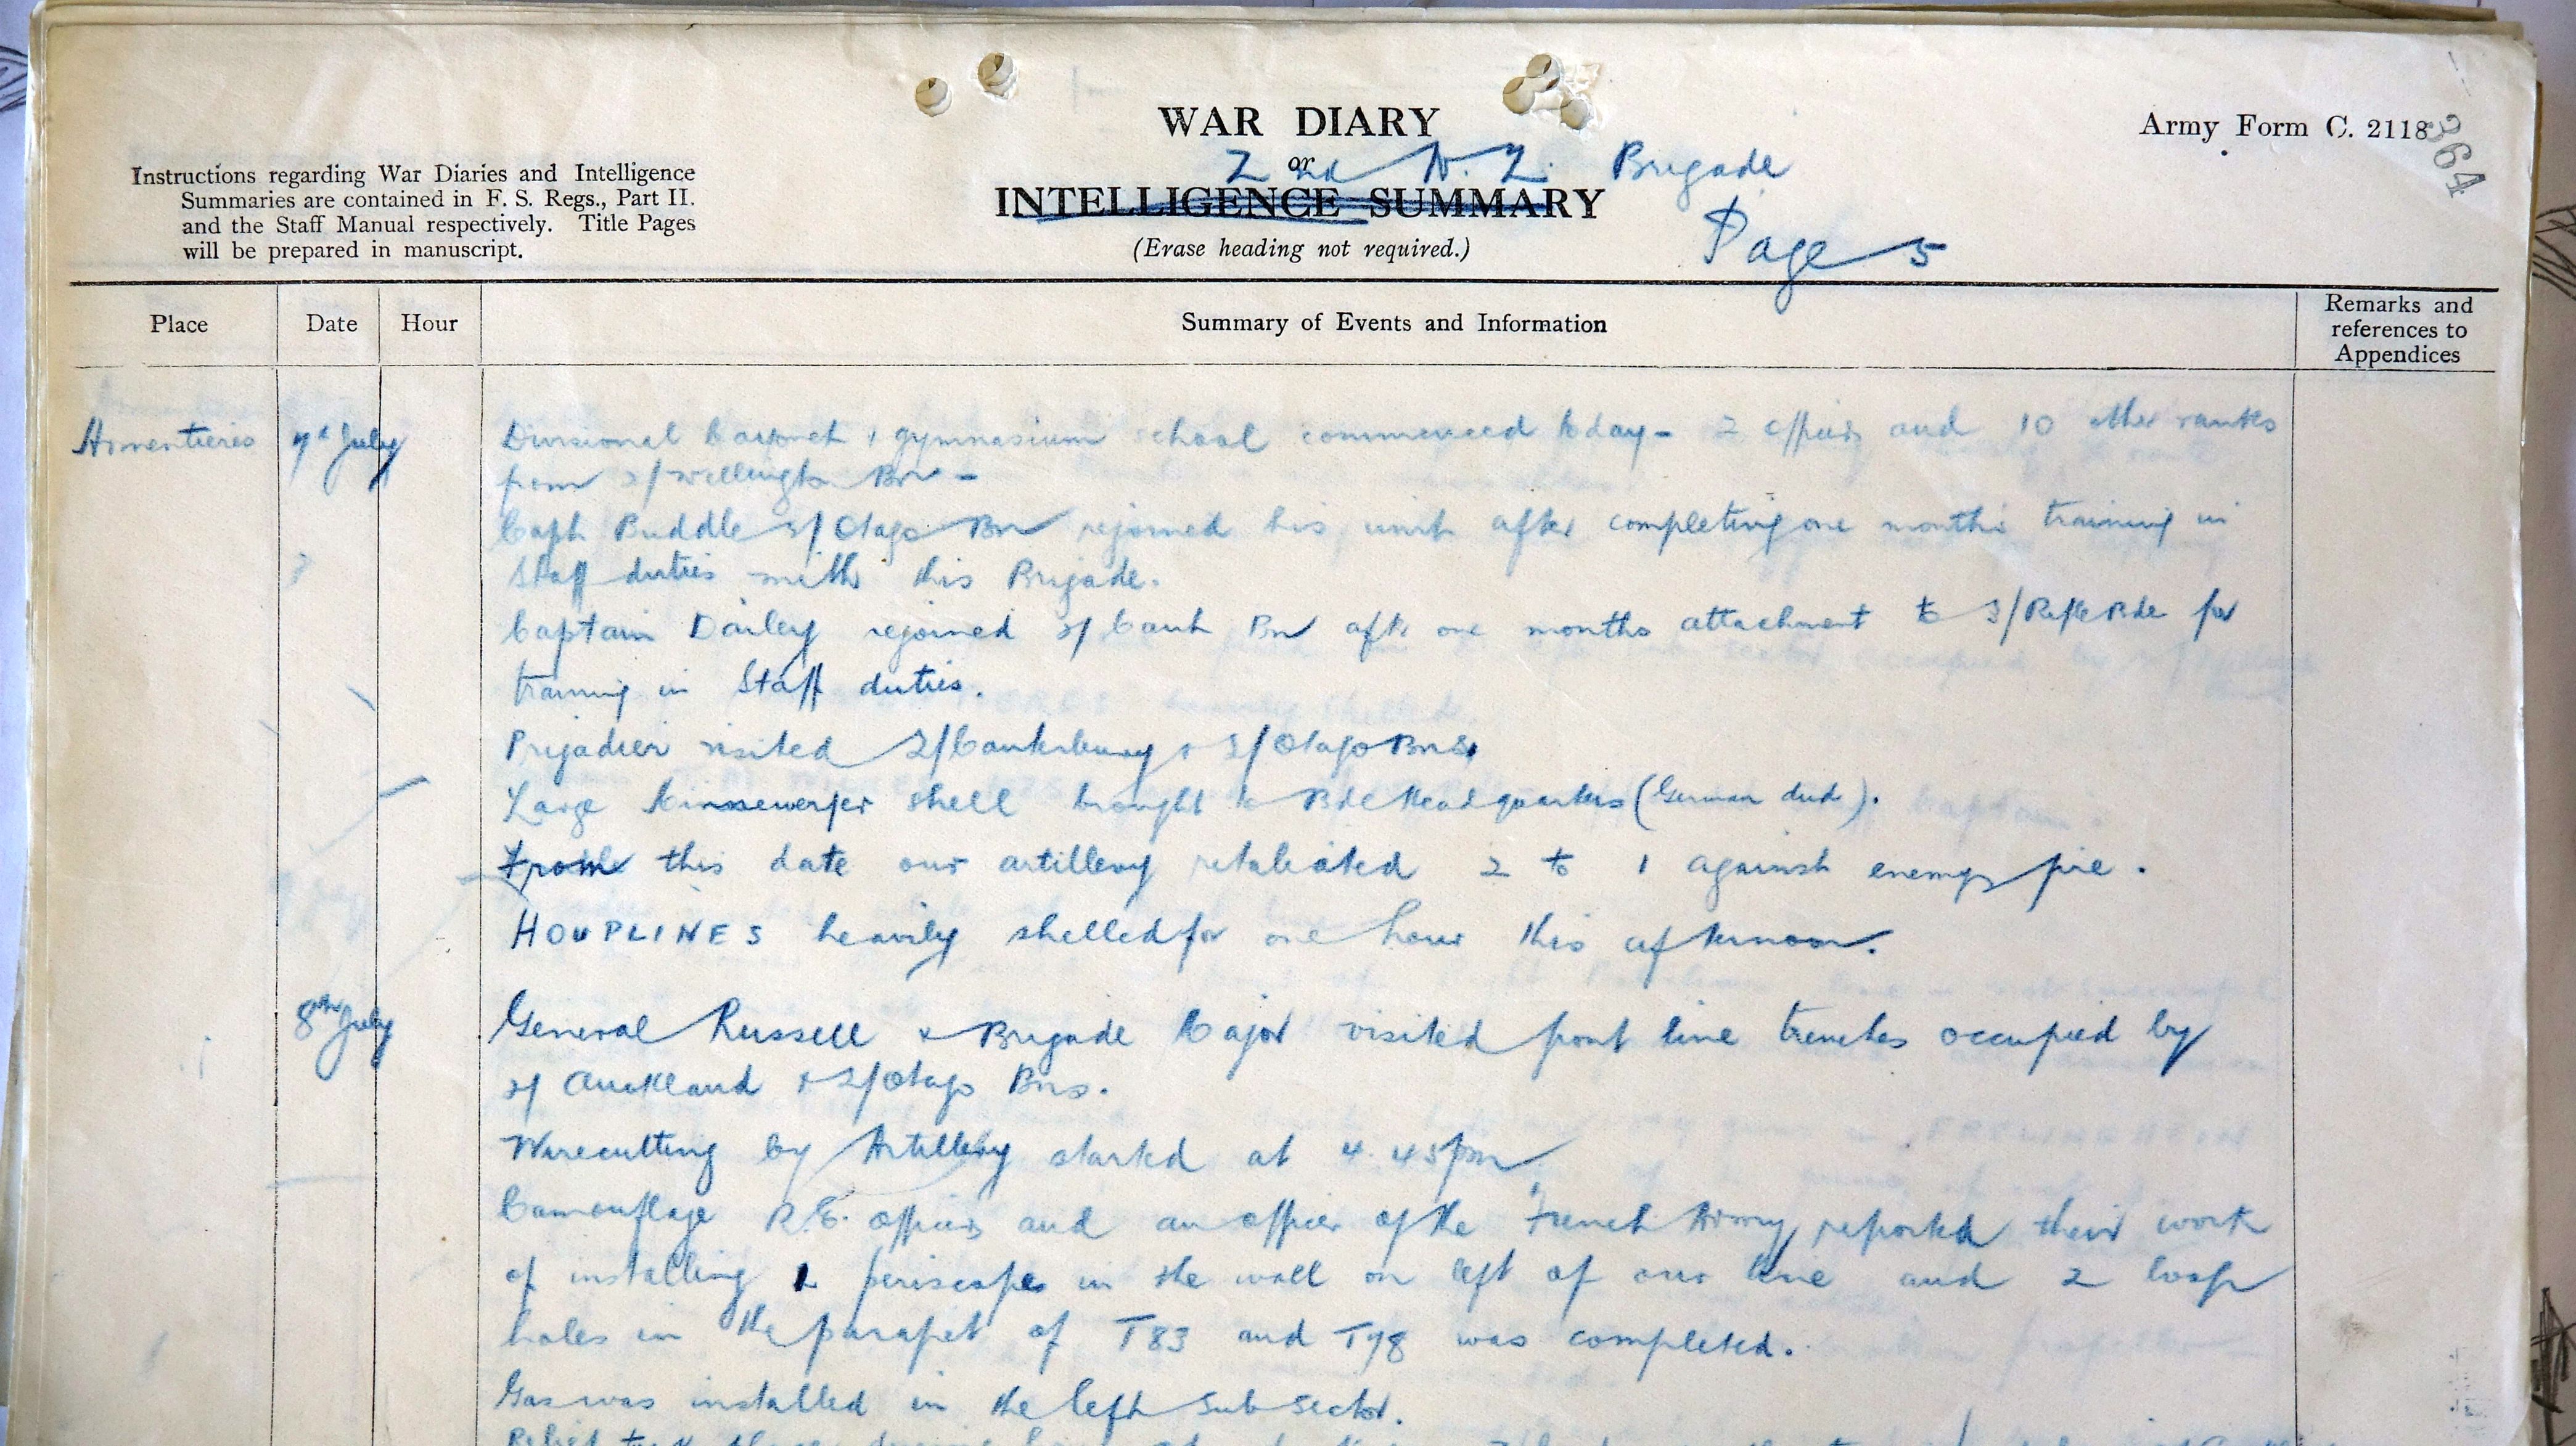 WAR DIARY
Army Form C. 2118
364
or
2nd N.Z. Brigade
Instructions regarding War Diaries and Intelligence
Summaries are contained in F. S. Regs., Part II.
and the Staff Manual respectively. Title Pages
will be prepared in manuscript.
INTELLIGENCE SUMMARY
(Erase heading not required.)
Page 5
Place
Date
Hour
Summary of Events and Information
Remarks and
references to
Appendices
Armentieres 7th July Divisional bayonet & gymnasium school commenced today - 2 officers and 10 other ranks
from 2/Wellington Bn -
Capt Buddle 2/Otago Bn rejoined his unit after completing one months training in
Staff duties with this Brigade.
Captain Dailey rejoined 2/Cant Bn after one months attachment to 3/Rifle Bde for
training in Staff duties.
Brigadier visited 2/Canterbury & 2/Otago Bns.
Large Minnewerfer shell brought to Bde Headquarters (German dud).
From this date our artillery retaliated 2 to 1 against enemy fire.
HOUPLINES heavily shelled for one hour this afternoon.
8th July General Russell & Brigade Major visited front line trenches occupied by
2/Auckland & 2/Otago Bns.
Wirecutting by Artillery started at 4.45pm
Camouflage R.E. officers and an officer of the French Army reported their work
of installing 1 periscope in the wall on left of our line and 2 loop
holes in the parapet of T83 and T78 was completed.
Gas was installed in the left sub sector.
Relief took place